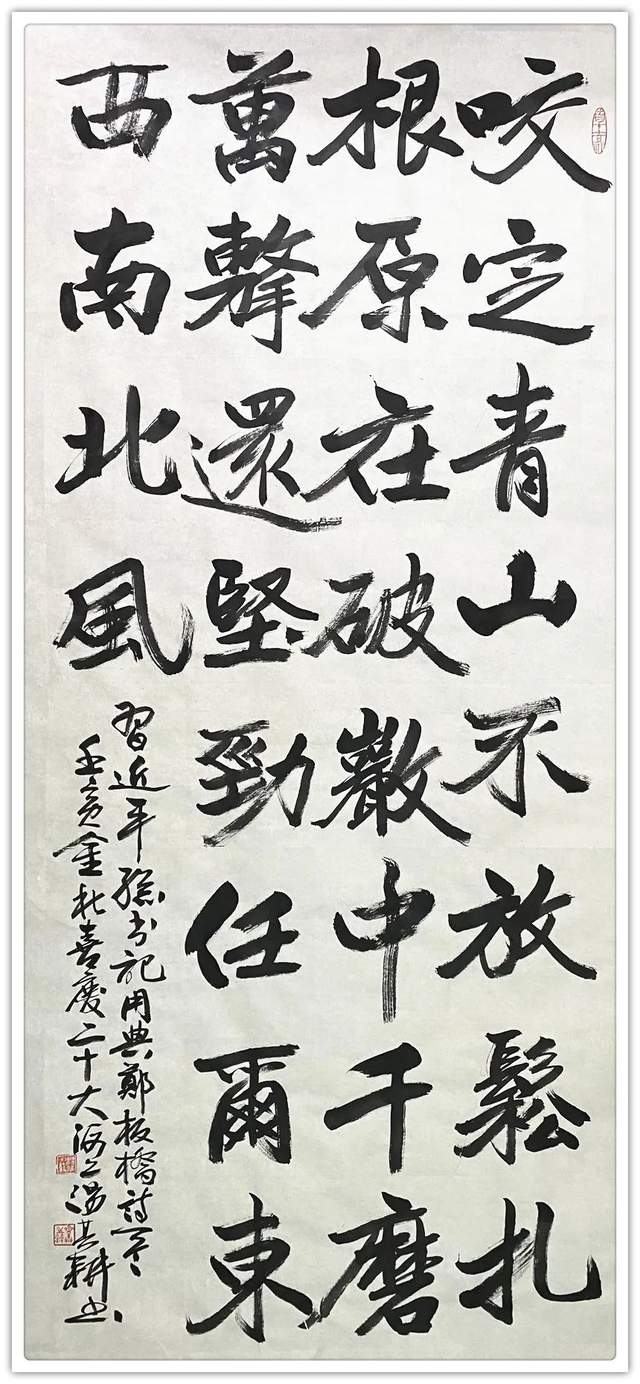 咬定青山不放鬆扎
根原在破巖中千磨
萬擊還堅勁任爾東
西南北風
習近平總書記用典鄭板橋詩
壬寅金秋喜慶二十大海上湯其耕書